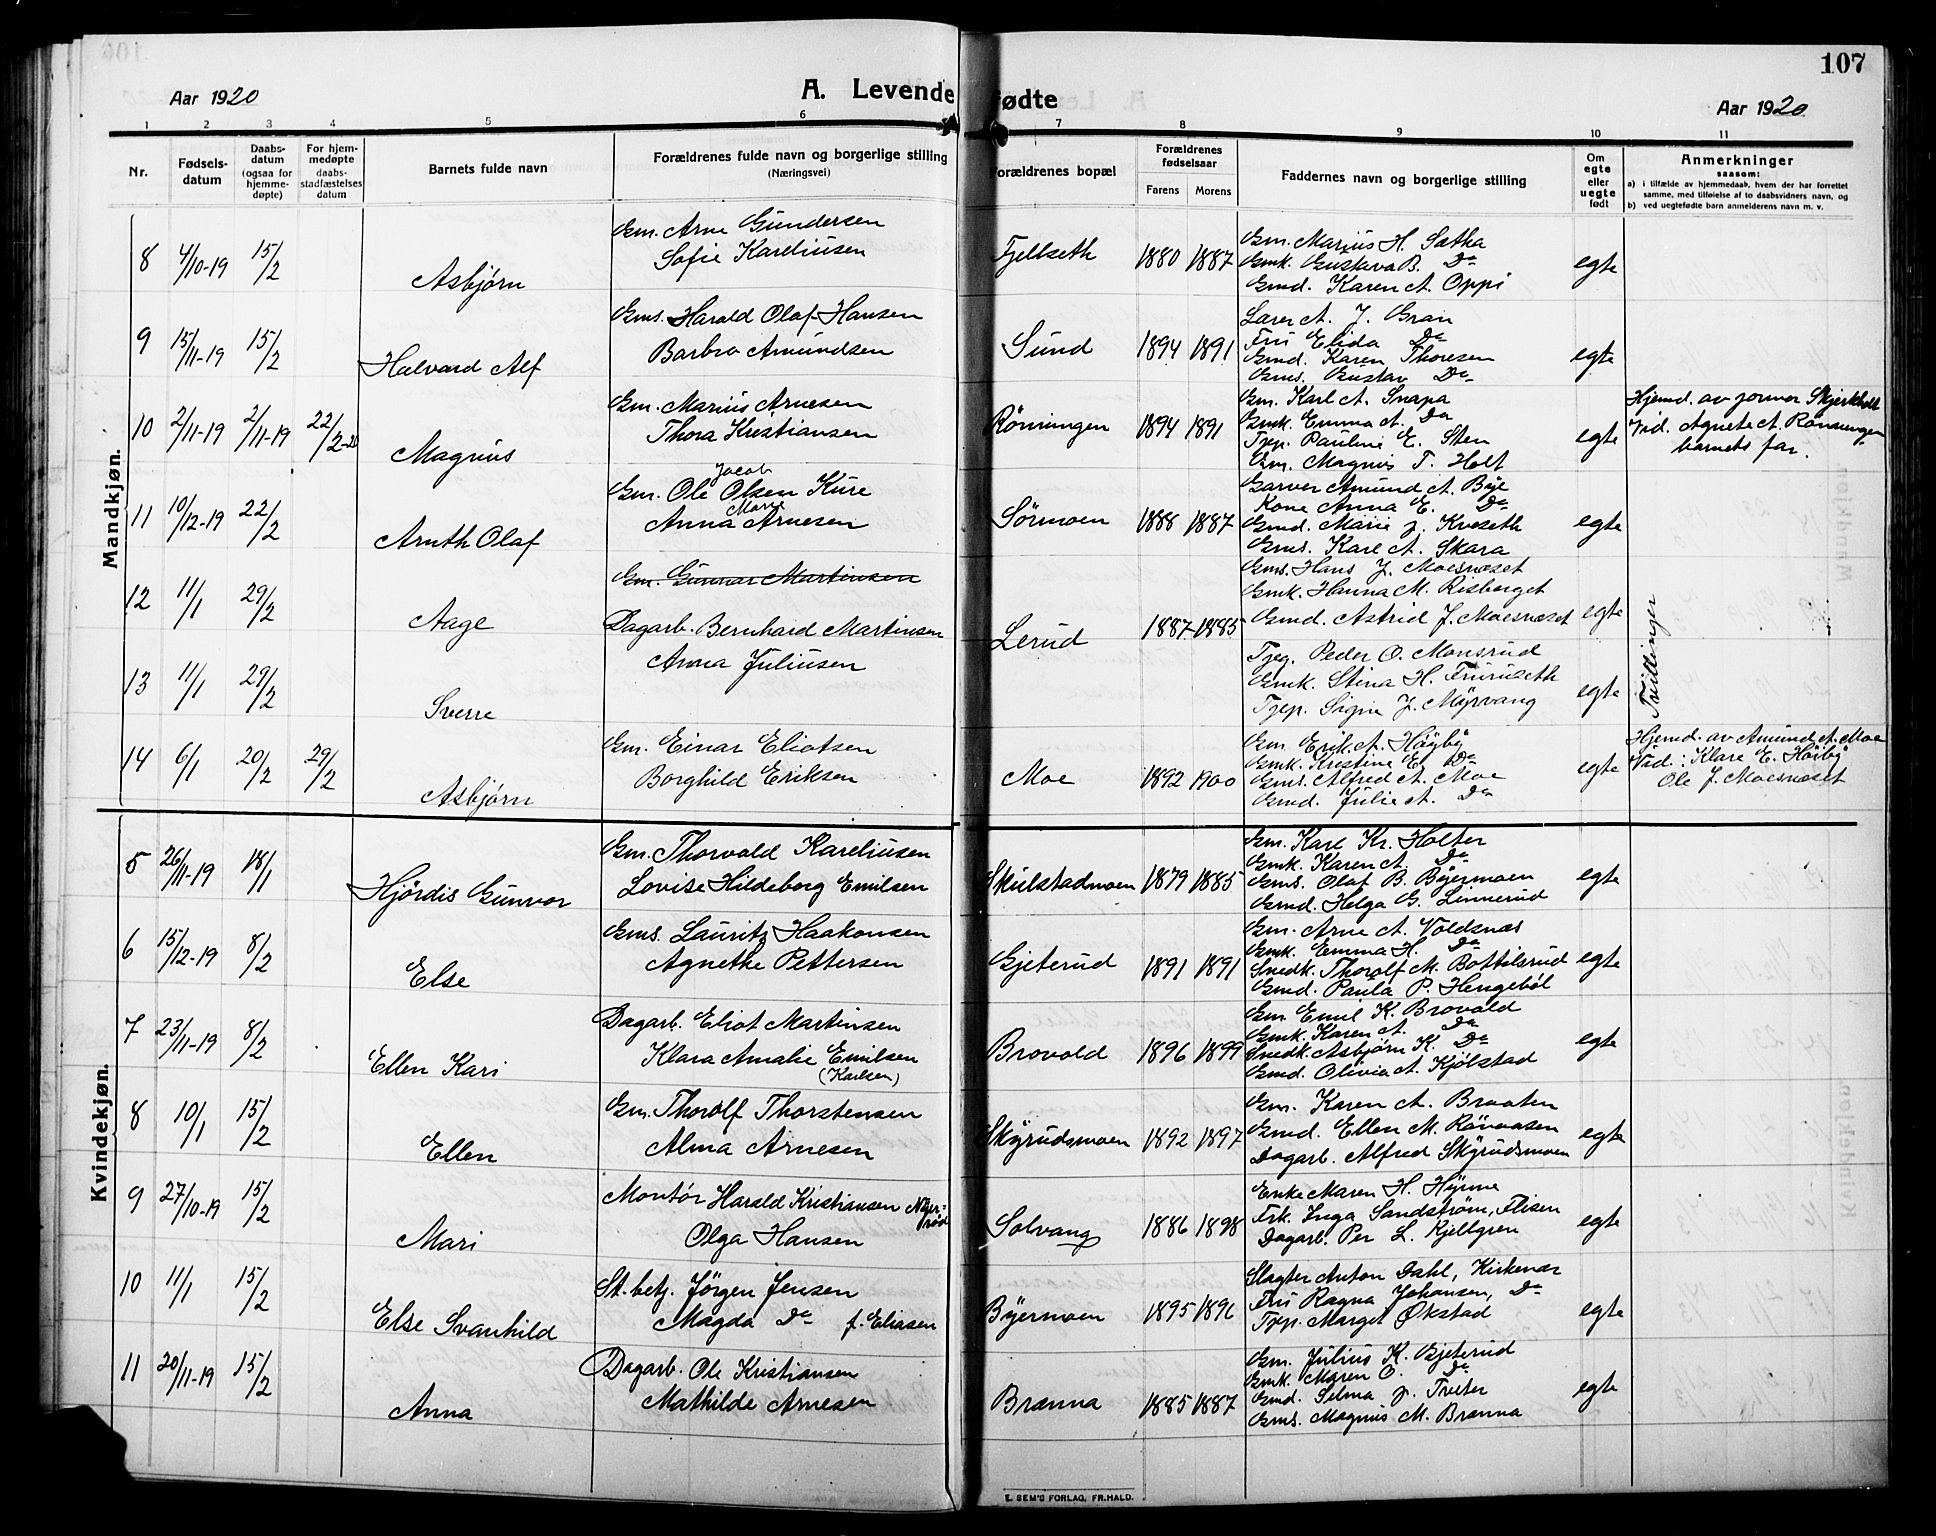 107
Aar 1920
A. Levende fødte
Aar 1920
1 2 3 4 5 6 7 8 9 10 11
Nr.
Fødsels-
datum
Daabs-
datum
(ogsaa for
hjemme-
døpte)
For hjem-
medøpte
daabs-
stadfæstelses
datum
Barnets fulde navn
Forældrenes fulde navn og borgerlige stilling
(Næringsvei)
Forældrenes bopæl
Forældrenes
fødselsaar
Farens Morens
Faddernes navn og borgerlige stilling
Om
egte
eller
uegte
født
Anmerkninger
saasom:
a) i tilfælde av hjemmedaab, hvem der har forrettet
samme, med tilføielse af to daabsvidners navn, og
b) ved uegtefødte barn anmelderens navn m. v.
Mandkjøn.
8 4/10-19 15/2 Asbjørn
Gm. Arne Gundersen
Sofie Kareliusen
Fjellseth 1880 1887
Gm. Marius H. Sætha
Gmk. Gustava B. Do
Gmd. Karen A. Oppi
egte
9 15/11-19 15/2 Halvard Alf
Gms. Harald Olaf Hansen
Barbro Amundsen
Sund 1894 1891
Lærer A. J. Gran
Fru Elida Do
Gmd. Karen Thoresen
Gms. Gustav Do
egte
10 2/11-19 2/11-19 22/2-20 Magnus
Gm. Marius Arnesen
Thora Kristiansen
Rønningen 1894 1891
Gm. Karl A. Snapa
Gmk. Emma A. Do
Tjep. Pauline E. Sten
Gm. Magnus T. Holt
egte
Hjemd. av jormor Skjerkholt
Vid. Agnete A. Rønningen
barnets far.
11 10/12-19 22/2 Arnth Olaf
Jacob
Gm. Ole Olsen Kure
Marie
Anna Arnesen
Sørmoen 1888 1887
Garver Amund A. Bye
Kone Anna E. Do
Gmd. Marie J. Kveseth
Gms. Karl A. Skara
egte
12 11/1 29/2 Aage
Gm. Gunnar Martinsen
Dagarb. Bernhard Martinsen
Anna Juliusen
Lerud 1887 1885
Gms. Hans J. Moesnæset
Gmk. Hanna M. Risberget
Gmd. Astrid J. Moesnæset
egte
Tvillinger
13 11/1 29/2 Sverre
Tjeg. Peder O. Monsrud
Gmk. Stina H. Fururseth
Tjep. Signe J. Myrvang
egte
14 6/1 20/2 29/2 Asbjørn
Gm. Einar Eliotsen
Borghild Eriksen
Moe 1892 1900
Gm. Erik A. Høyby
Gmk. Kristine E. Do
Gms. Alfred A. Moe
Gmd. Julie A. Do
egte
Hjemd. av Amund A. Moe
Vid.: Klare E. Høiby
Ole J. Moesnæset
Kvindekjøn.
5 26/11-19 18/1 Hjördis Gunvor
Gm. Thorvald Kareliusen
Lovise Hildeborg Emilsen
Skulstadmoen 1879 1885
Gm. Karl Kr. Holter
Gmk. Karen A. Do
Gms. Olaf B. Byermoen
Gmd. Helga G. Linnerud
egte
6 15/12-19 8/2 Else
Gms. Lauritz Haakonsen
Agnethe Pettersen
Gjeterud 1891 1891
Gm. Arne A. Voldsnæs
Gmk. Emma H. Do
Snedk. Thorolf M. Bottilsrud
Gmd. Paula P. Hengeböl
egte
7 23/11-19 8/2 Ellen Kari
Dagarb. Eliot Martinsen
Klara Amalie Emilsen
(Karlsen)
Brovold 1896 1899
Gm. Emil K. Brovold
Gmk. Karen A. Do
Snedk. Asbjørn K. Do
Gmd. Olivia A. Kjölstad
egte
8 10/1 15/2 Ellen
Gm. Thorolf Thorstensen
Alma Arnesen
Skyrudsmoen 1892 1897
Gm. Karen A. Braaten
Gmd. Ellen M. Rövaasen
Dagarb. Alfred Skyrudsmoen
egte
9 27/10-19 15/2 Mari
Montör Harald Kristiansen
Olga Hansen
Solvang 1886 1898
Enke Maren H. Hynne
Frk. Inga Sandstrøm, Flisen
Dagarb. Per L. Kjellgren
egte
10 11/1 15/2 Else Svanhild
St. betj. Jörgen Jensen
Magda Do f. Eliasen
Byermoen 1895 1896
Slagter Anton Dahl, Kirkenær
Fru Ragna Johansen, Do
Tjep. Marget Økstad
egte
11 20/11-19 15/2 Anna
Dagarb. Ole Kristiansen
Mathilde Arnesen
Brænna 1885 1887
Gm. Julius K. Gjeterud
Gmk. Maren O. Do
Gmd. Selma J. Tveter
Gms. Magnus M. Brænna
egte
E. SEM'S FORLAG, FR.HALD.